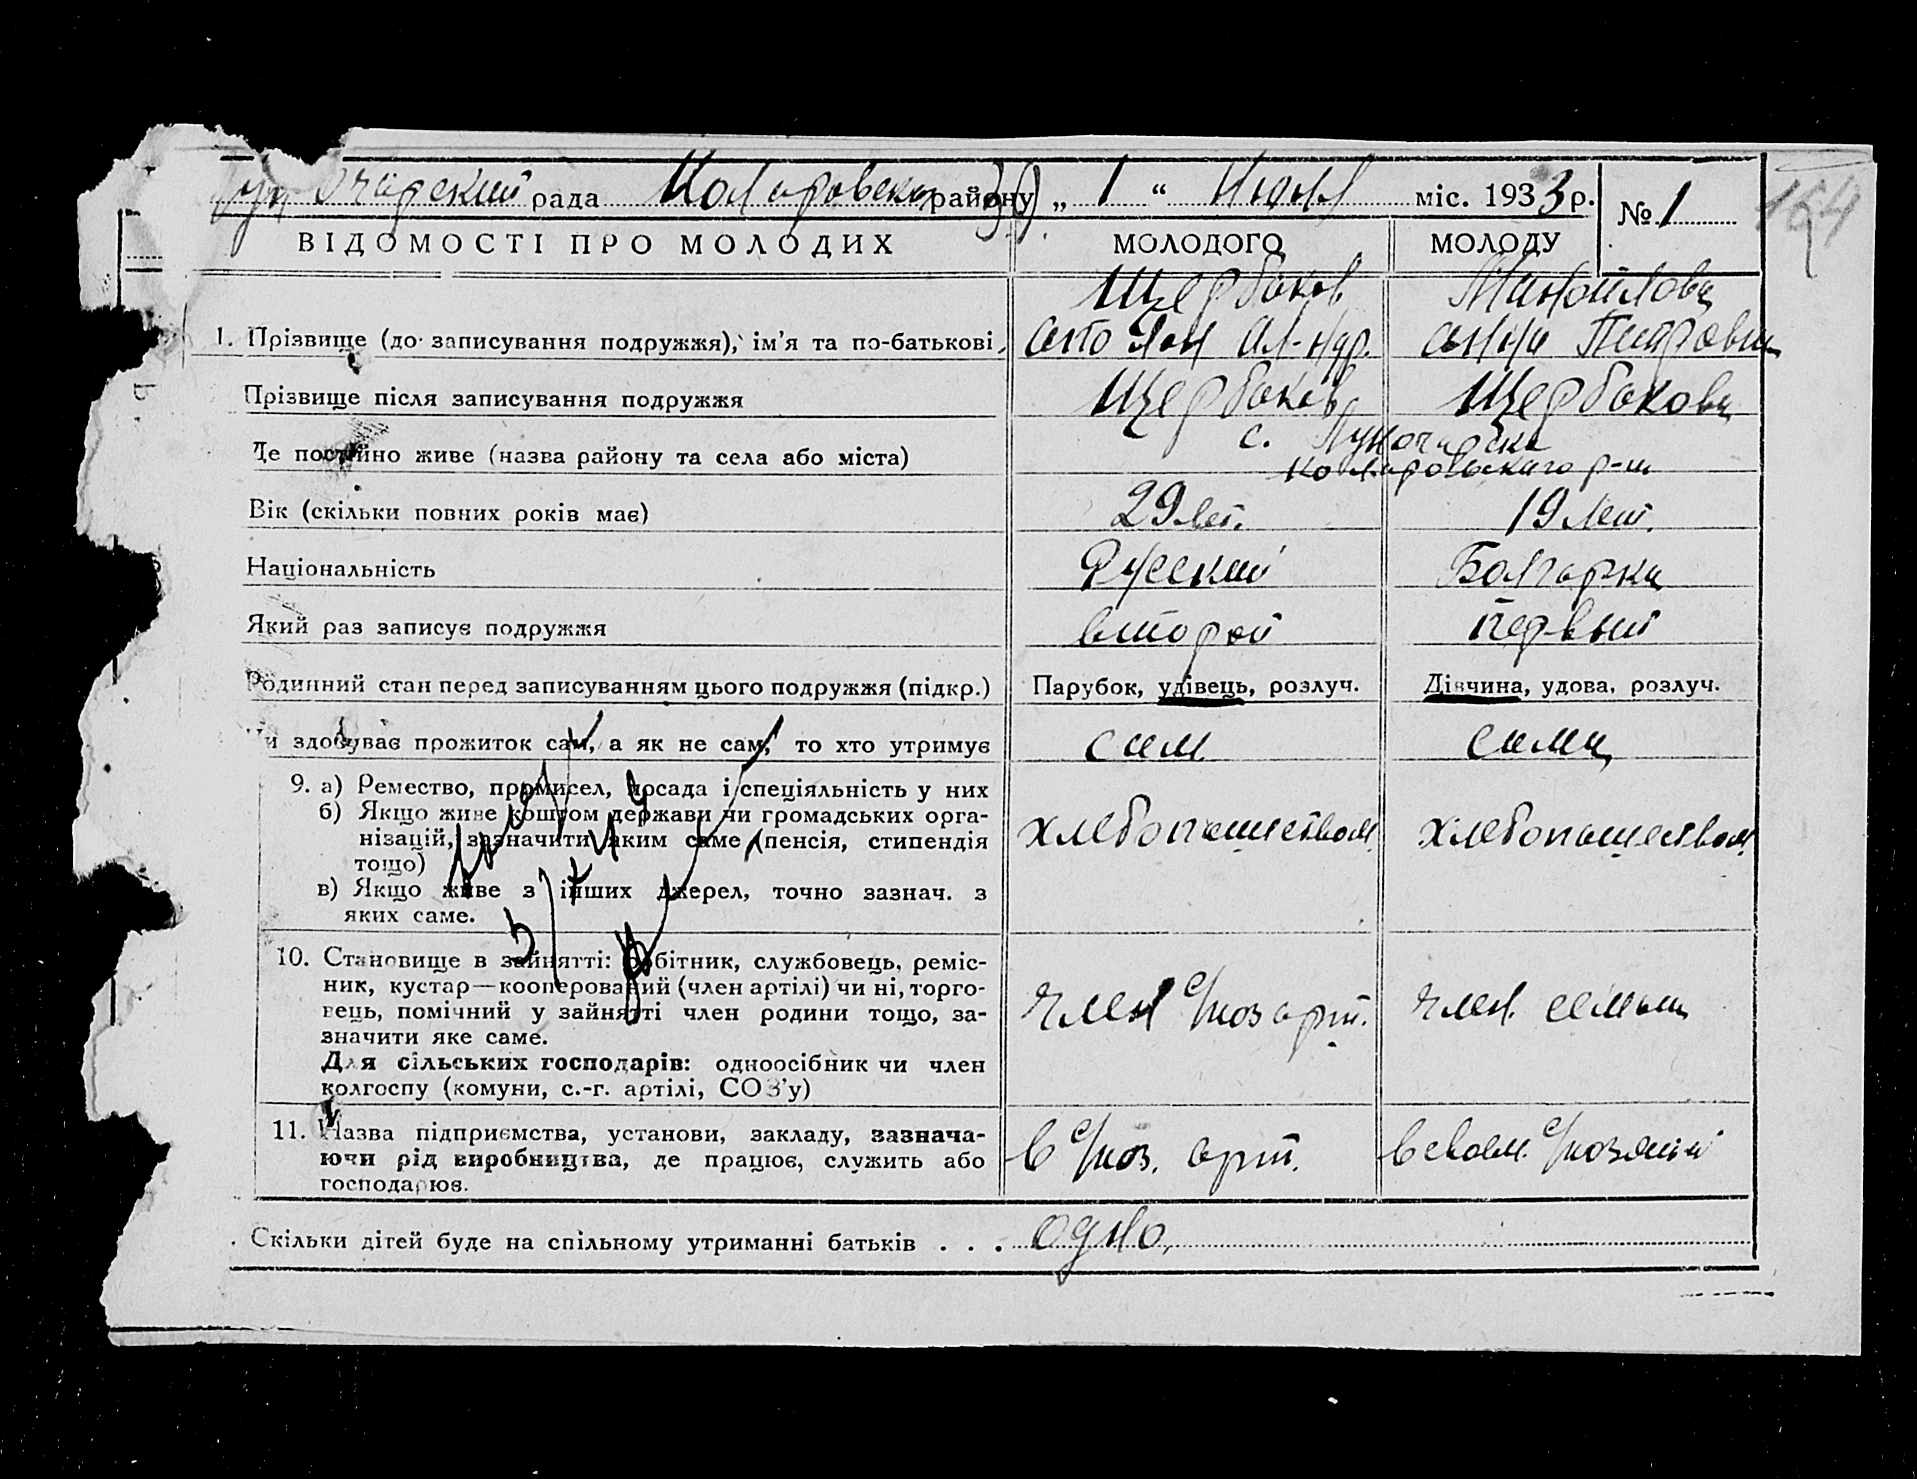 рада Коларовского району „ 1 “ Июня міс. 1933 р. № 1
164
ВІДОМОСТІ ПРО МОЛОДИХ МОЛОДОГО МОЛОДУ
Щербаков Манойлова
1. Прізвище (до записування подружжя), ім'я та по-батькові Анна Петровна
Прізвище після записування подружжя Щербаков Щербакова
с. Луночарска
Де постійно живе (назва району та села або міста) Коларовскаго р-на
Вік (скільки повних років має) 29 лет. 19 лет.
Національність Русский Болгарка
Який раз записує подружжя второй первый
Родинний стан перед записуванням цього подружжя (підкр.) Парубок, удівець, розлуч. Дівчина, удова, розлуч.
Чи здобуває прожиток сам, а як не сам, то хто утримує сам сама
9. а) Ремество, промисел, посада і спеціяльність у них
б) Якщо живе коштом держави чи громадських орга-
нізацій, зазначити яким саме (пенсія, стипендія хлебопашеством хлебопашеством
тощо)
в) Якщо живе з інших джерел, точно зазнач. з
яких саме.
10. Становище в зайнятті: робітник, службовець, реміс-
ник, кустар—кооперований (член артілі) чи ні, торго-
вець, помічний у зайнятті член родини тощо, за- член с/хоз арт. член семьи
значити яке саме.
Для сільських господарів: одноосібник чи член
колгоспу (комуни, с.-г. артілі, СОЗ'у)
11. Назва підприємства, установи, закладу, зазнача-
ючи рід виробництва, де працює, служить або в с/хоз. арт. в своем
господарює.
Скільки дітей буде на спільному утриманні батьків . . . одно